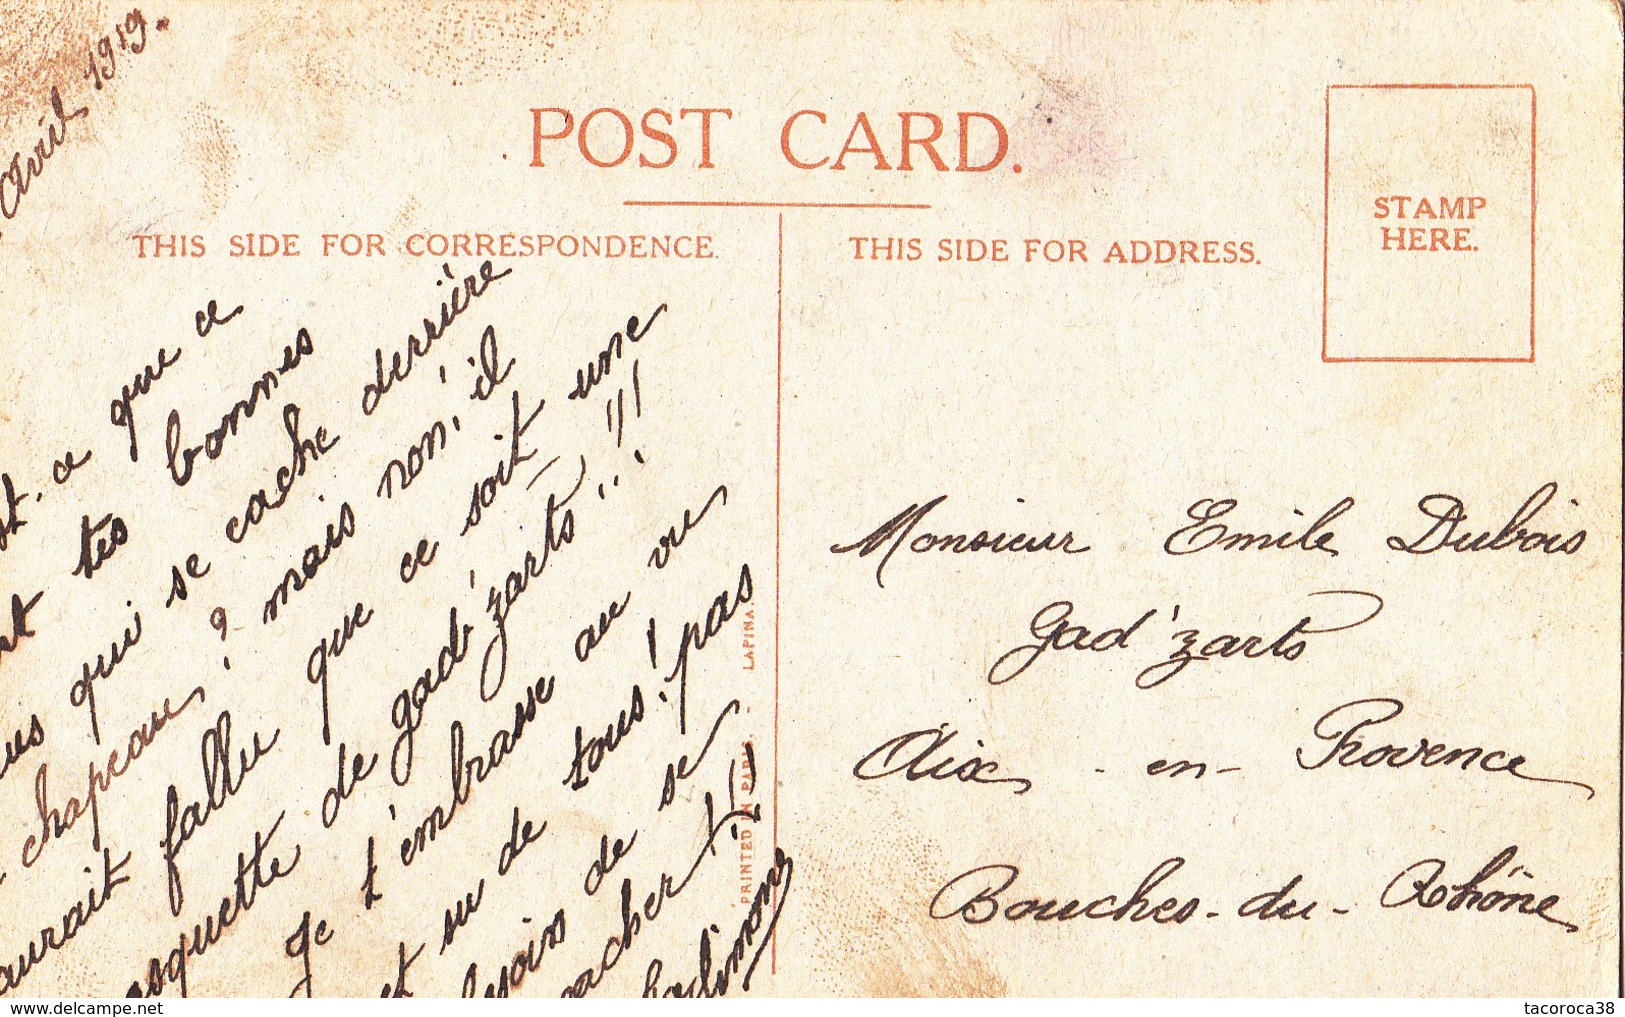 Avril 1919.
POST CARD.
THIS SIDE FOR CORRESPONDENCE.
THIS SIDE FOR ADDRESS.
STAMP
HERE.
st-ce que ce
nt tes bonnes
us qui se cache derrière
chapeau? mais non, il
aurait fallu que ce soit une
asquette de gad'zarts!!!
Je t'embrasse au vu
et su de tous! pas
besoin de se
cacher!!!
PRINTED IN PARIS. - LAPINA.
Monsieur Emile Dubois
Gad'zarts
Aix-en-Provence
Bouches-du-Rhône
www.delcampe.net
tacoroca38